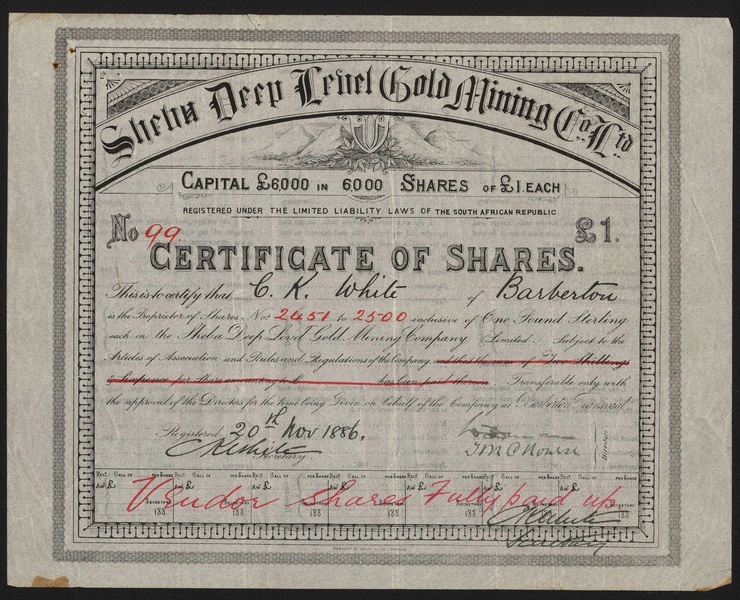 Sheba Deep Level Gold Mining Co. Ltd.
CAPITAL £6000 IN 6000 SHARES OF £1. EACH
REGISTERED UNDER THE LIMITED LIABILITY LAWS OF THE SOUTH AFRICAN REPUBLIC
No 99. £1.
CERTIFICATE OF SHARES.
This is to certify that C. K. White of Barberton
is the Proprietor of Shares Nos 2451 to 2500 inclusive of One Pound Sterling
each in the Sheba Deep Level Gold Mining Company Limited. Subject to the
Articles of Association and Rules and Regulations of the Company, and that the sum of Two Shillings
& Sixpence per Share amounting to £ has been paid thereon Transferable only with
the approval of the Directors for the time being Given on behalf of the Company at Barberton Transvaal
Registered 20th Nov 1886.
CKWhite
Secretary
Rect. CALL OF PER SHARE Rect. CALL OF PER SHARE Rect. CALL OF PER SHARE Rect. CALL OF PER SHARE Rect. CALL OF PER SHARE
Amt £ Amt £ Amt £ Amt £ Amt £
Vendor Shares Fully paid up
188 188 188 188 188
CKWhite
Secretary